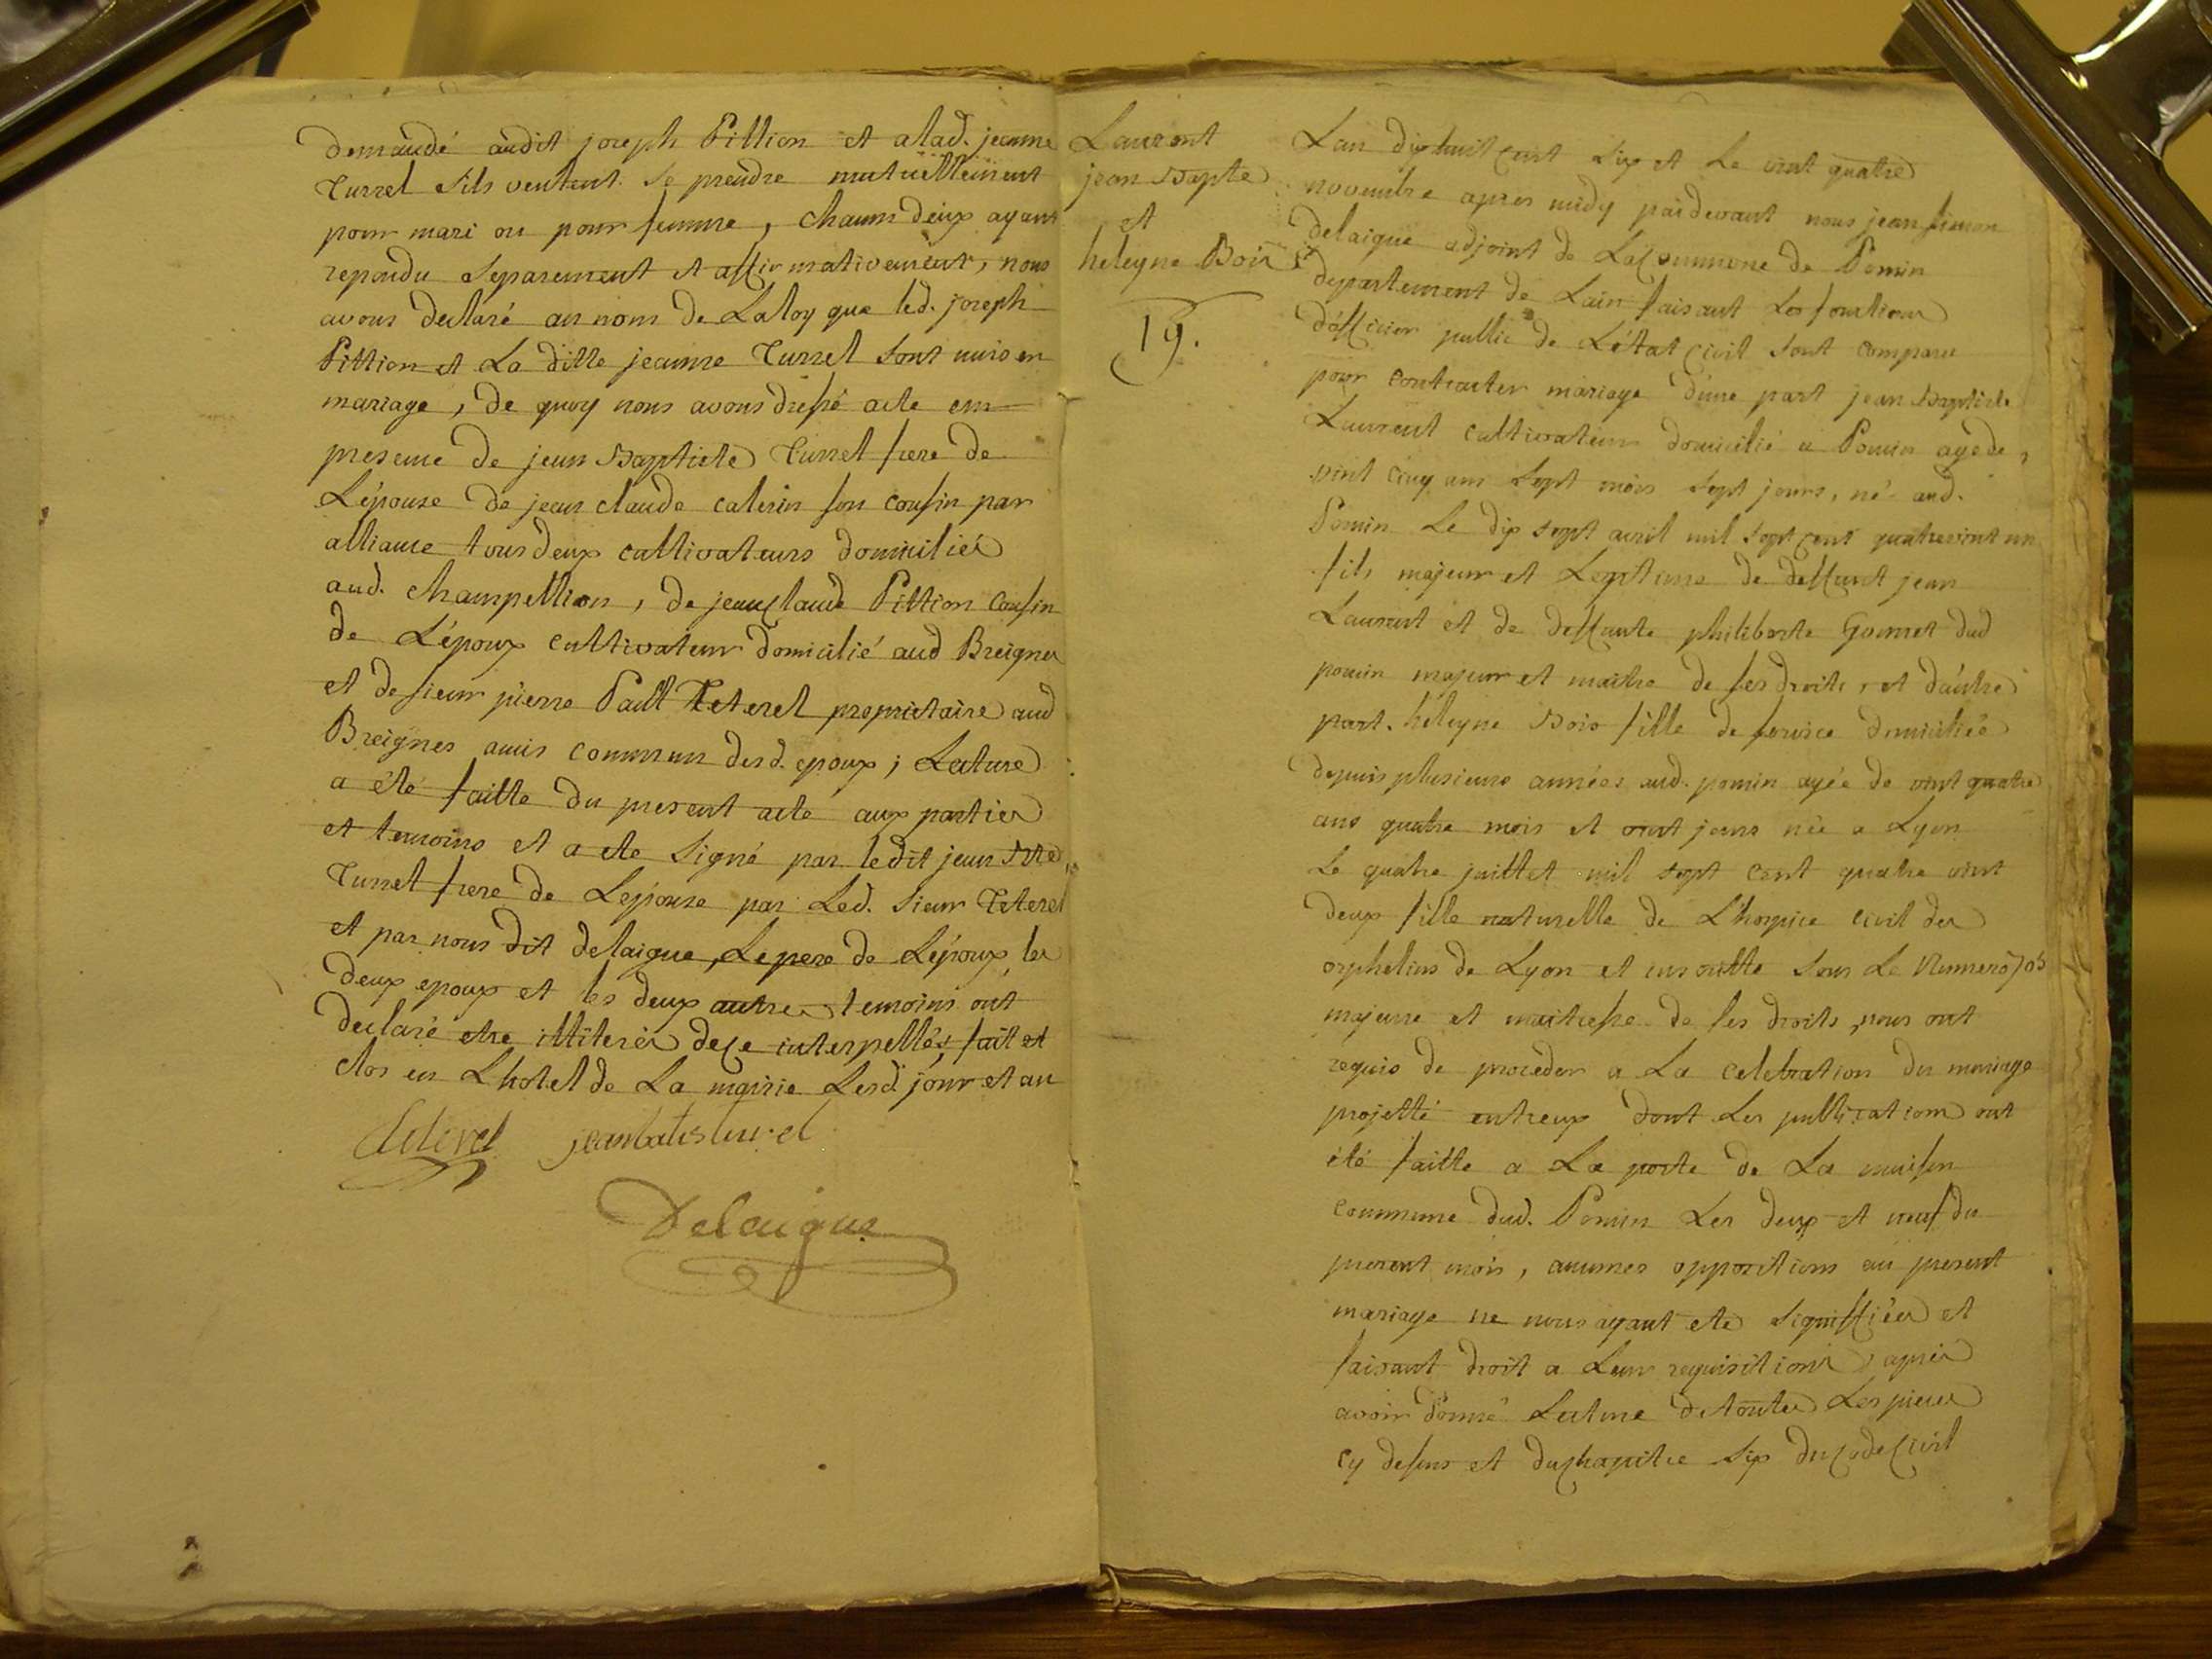 demandé audit joseph Pittion et alad. jeanne
Turrel sils veulent se prendre mutuellement
pour mari ou pour femme, chacuns deux ayant
repondu separement et affirmativement, nous
avons declaré au nom de Laloy que led. joseph
Pittion et La ditte jeanne Turrel sont unis en
mariage, de quoy nous avons dressé acte en
presence de jean Baptiste Turrel frere de
Lépouse de jean claude caterin son cousin par
alliance tous deux cultivateurs domiciliés
aud. champettion, de jeanclaude Pittion cousin
de Lépoux cultivateur domicilié aud Breignes
et de sieur pierre Teterel propriétaire aud
Breignes amis commun desd. epoux; Lecture
a été faitte du present acte aux parties
et temoins et a ete signé par ledit jean Bte
Turrel frere de Lepouse par Led. sieur Teterel
et par nous dit delaigue, Le pere de Lépoux, les
deux epoux et les deux autres temoins ont
declaré etre illiterés dece interpellés, fait et
clos en Lhotel de La mairie Lesd. jour et an
Teterel jeanbatisturel
Delaigue
Laurent
jean Bapte
et
heleyne Bois
19.
Lan dixhuit cent six et Le vint quatre
novembre apres midy pardevant nous jean simon
delaigue adjoint de Lacommune de Pomin
departement de Lain faisant les fonctions
dofficier public de Létat civil sont comparu
pour contracter mariage dune part jean Baptiste
Laurent cultivateur domicilié a Pomin age de
vint cinq ans sept mois sept jours, né aud.
Pomin Le dix sept avril mil sept cent quatrevint un
fils majeur et Legitime de deffunt jean
Laurent et de deffunte philiberte dud
pomin majeur et maitre de ses droits, et dautre
part. héleyne Bois fille de service domiciliée
depuis plusieurs années aud. pomin agée de vint quatre
ans quatre mois et vint jours née a Lyon
Le quatre juillet mil sept cent quatre vint
deux fille naturelle de Lhospice civil des
orphelins de Lyon et inscritte sous Le Numero 705
majeure et maitresse de ses droits, nous ont
requis de proceder a La celebration du mariage
projetté entreux dont Les publications ont
été faitte a La porte de La maison
commune dud. Pomin Les deux et neuf du
present mois, aucunes oppositions au present
mariage ne nous ayant ete signiffiées et
faisant droit a Leur requisitions, après
avoir donné Lecture detoutes Les pieces
cy dessus et duchapitre six ducodecivil